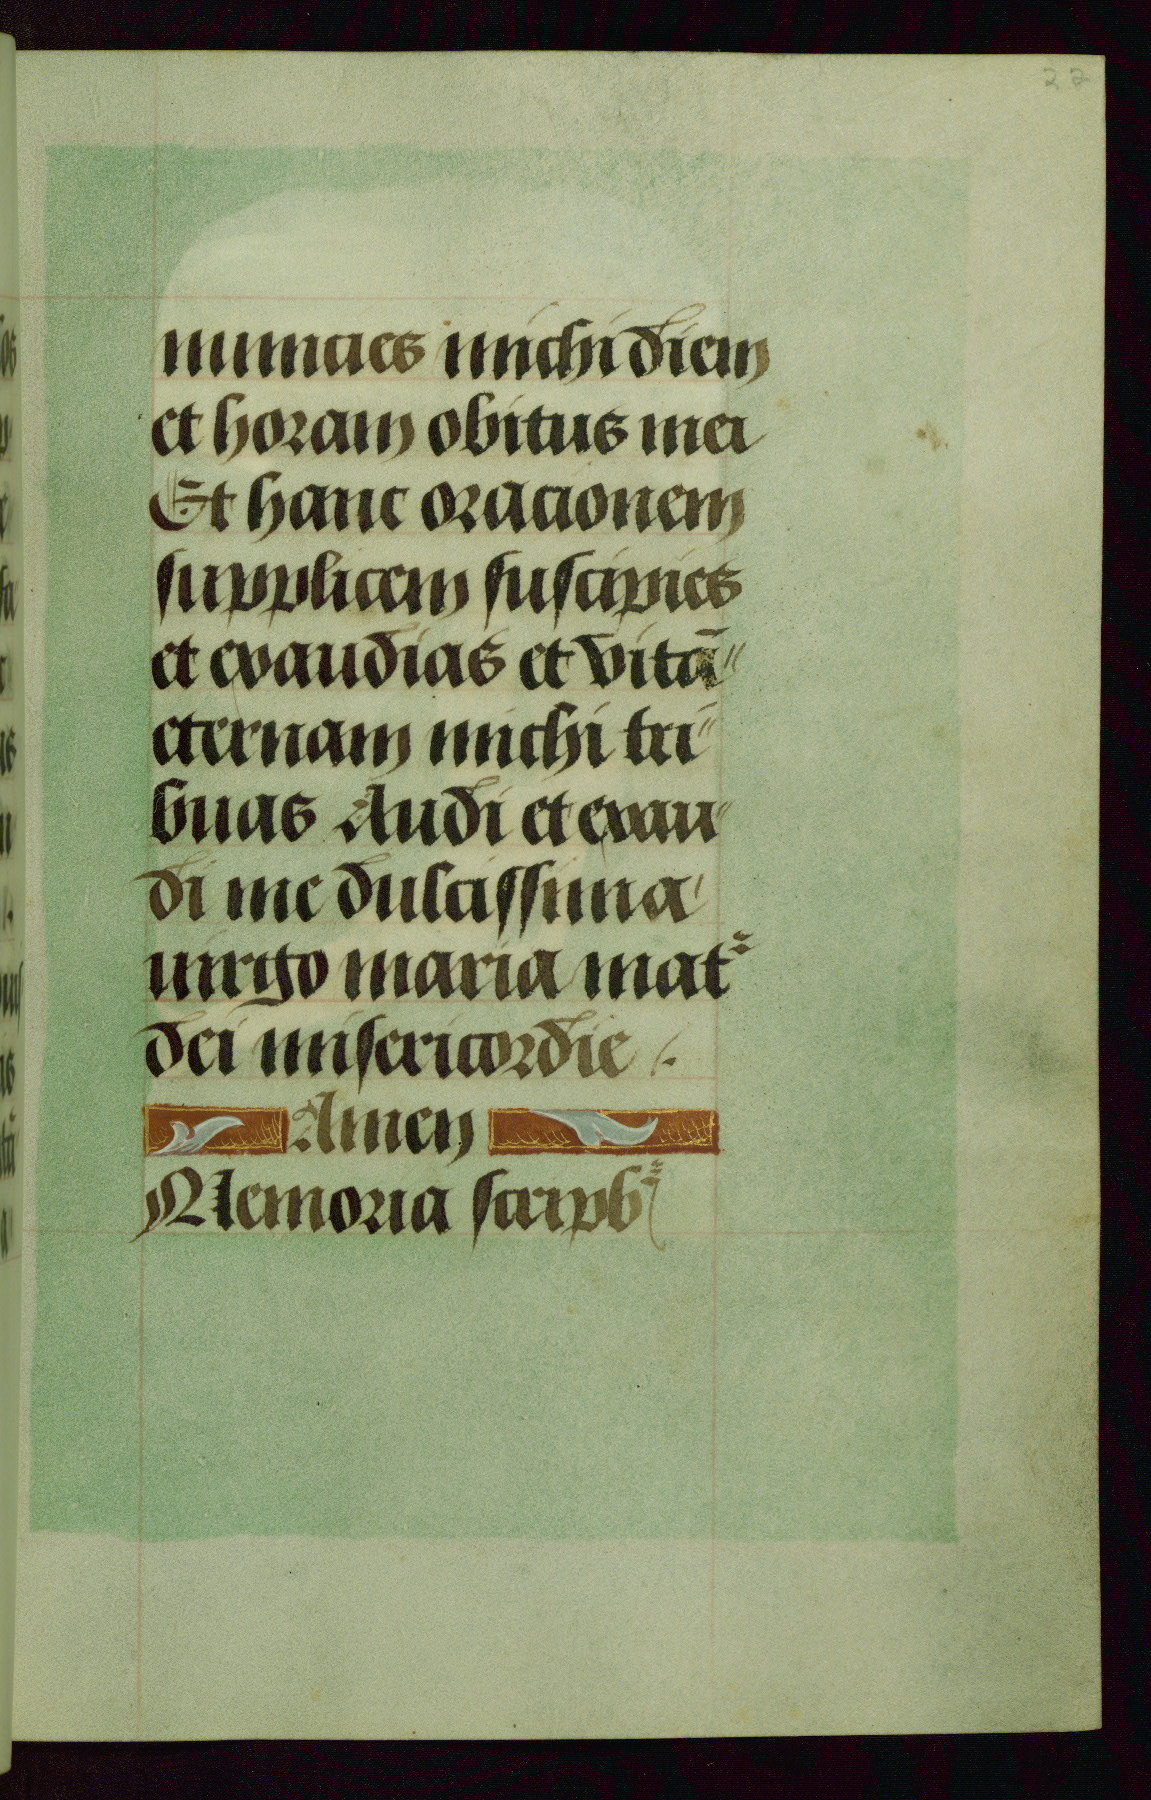 22
nuncies michi diem
et horam obitus mei
Et hanc oracionem
supplicem suscipies
et exaudias et vitā
eternam michi tri
buas Audi et exau
di me dulcissima
uirgo maria mat
dei misericordie .
Amen
Memoria